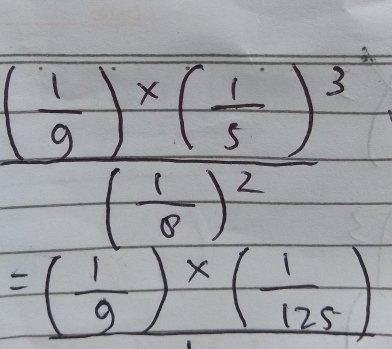 (1/9) × (1/5)^3
(1/8)^2
= (1/9) × (1/125)